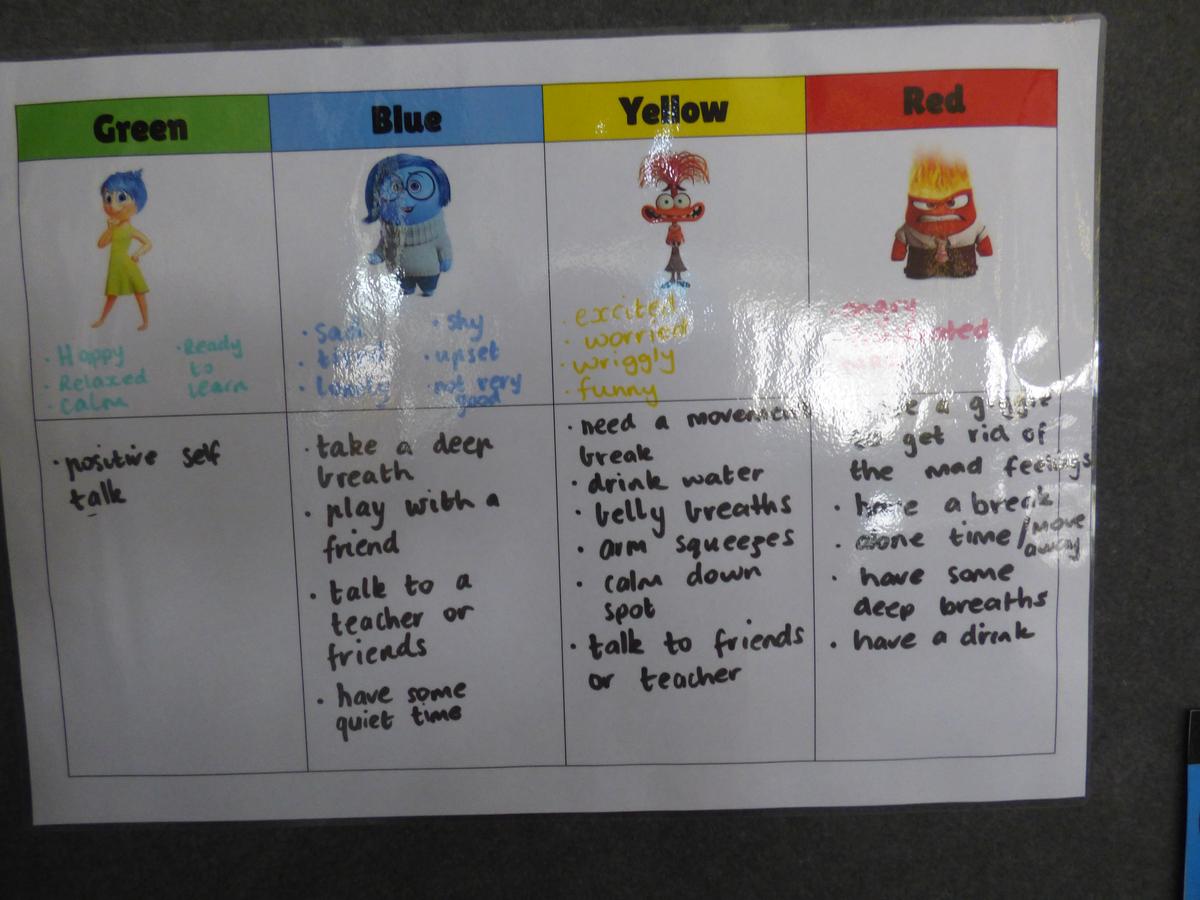 Green
Blue
Yellow
Red
· Happy
· Relaxed
· calm
· Ready
to
learn
· Sad
· tired
· Lonely
· shy
· upset
· not very
good
· excited
· worried
· wriggly
· funny
· angry
· positive self
talk
· take a deep
breath
· play with a
friend
· talk to a
teacher or
friends
· have some
quiet time
· need a movement
break
· drink water
· belly breaths
· arm squeezes
· calm down
spot
· talk to friends
or teacher
a giggle
to get rid of
the mad feelings
· have a break
· alone time / move
away
· have some
deep breaths
· have a drink